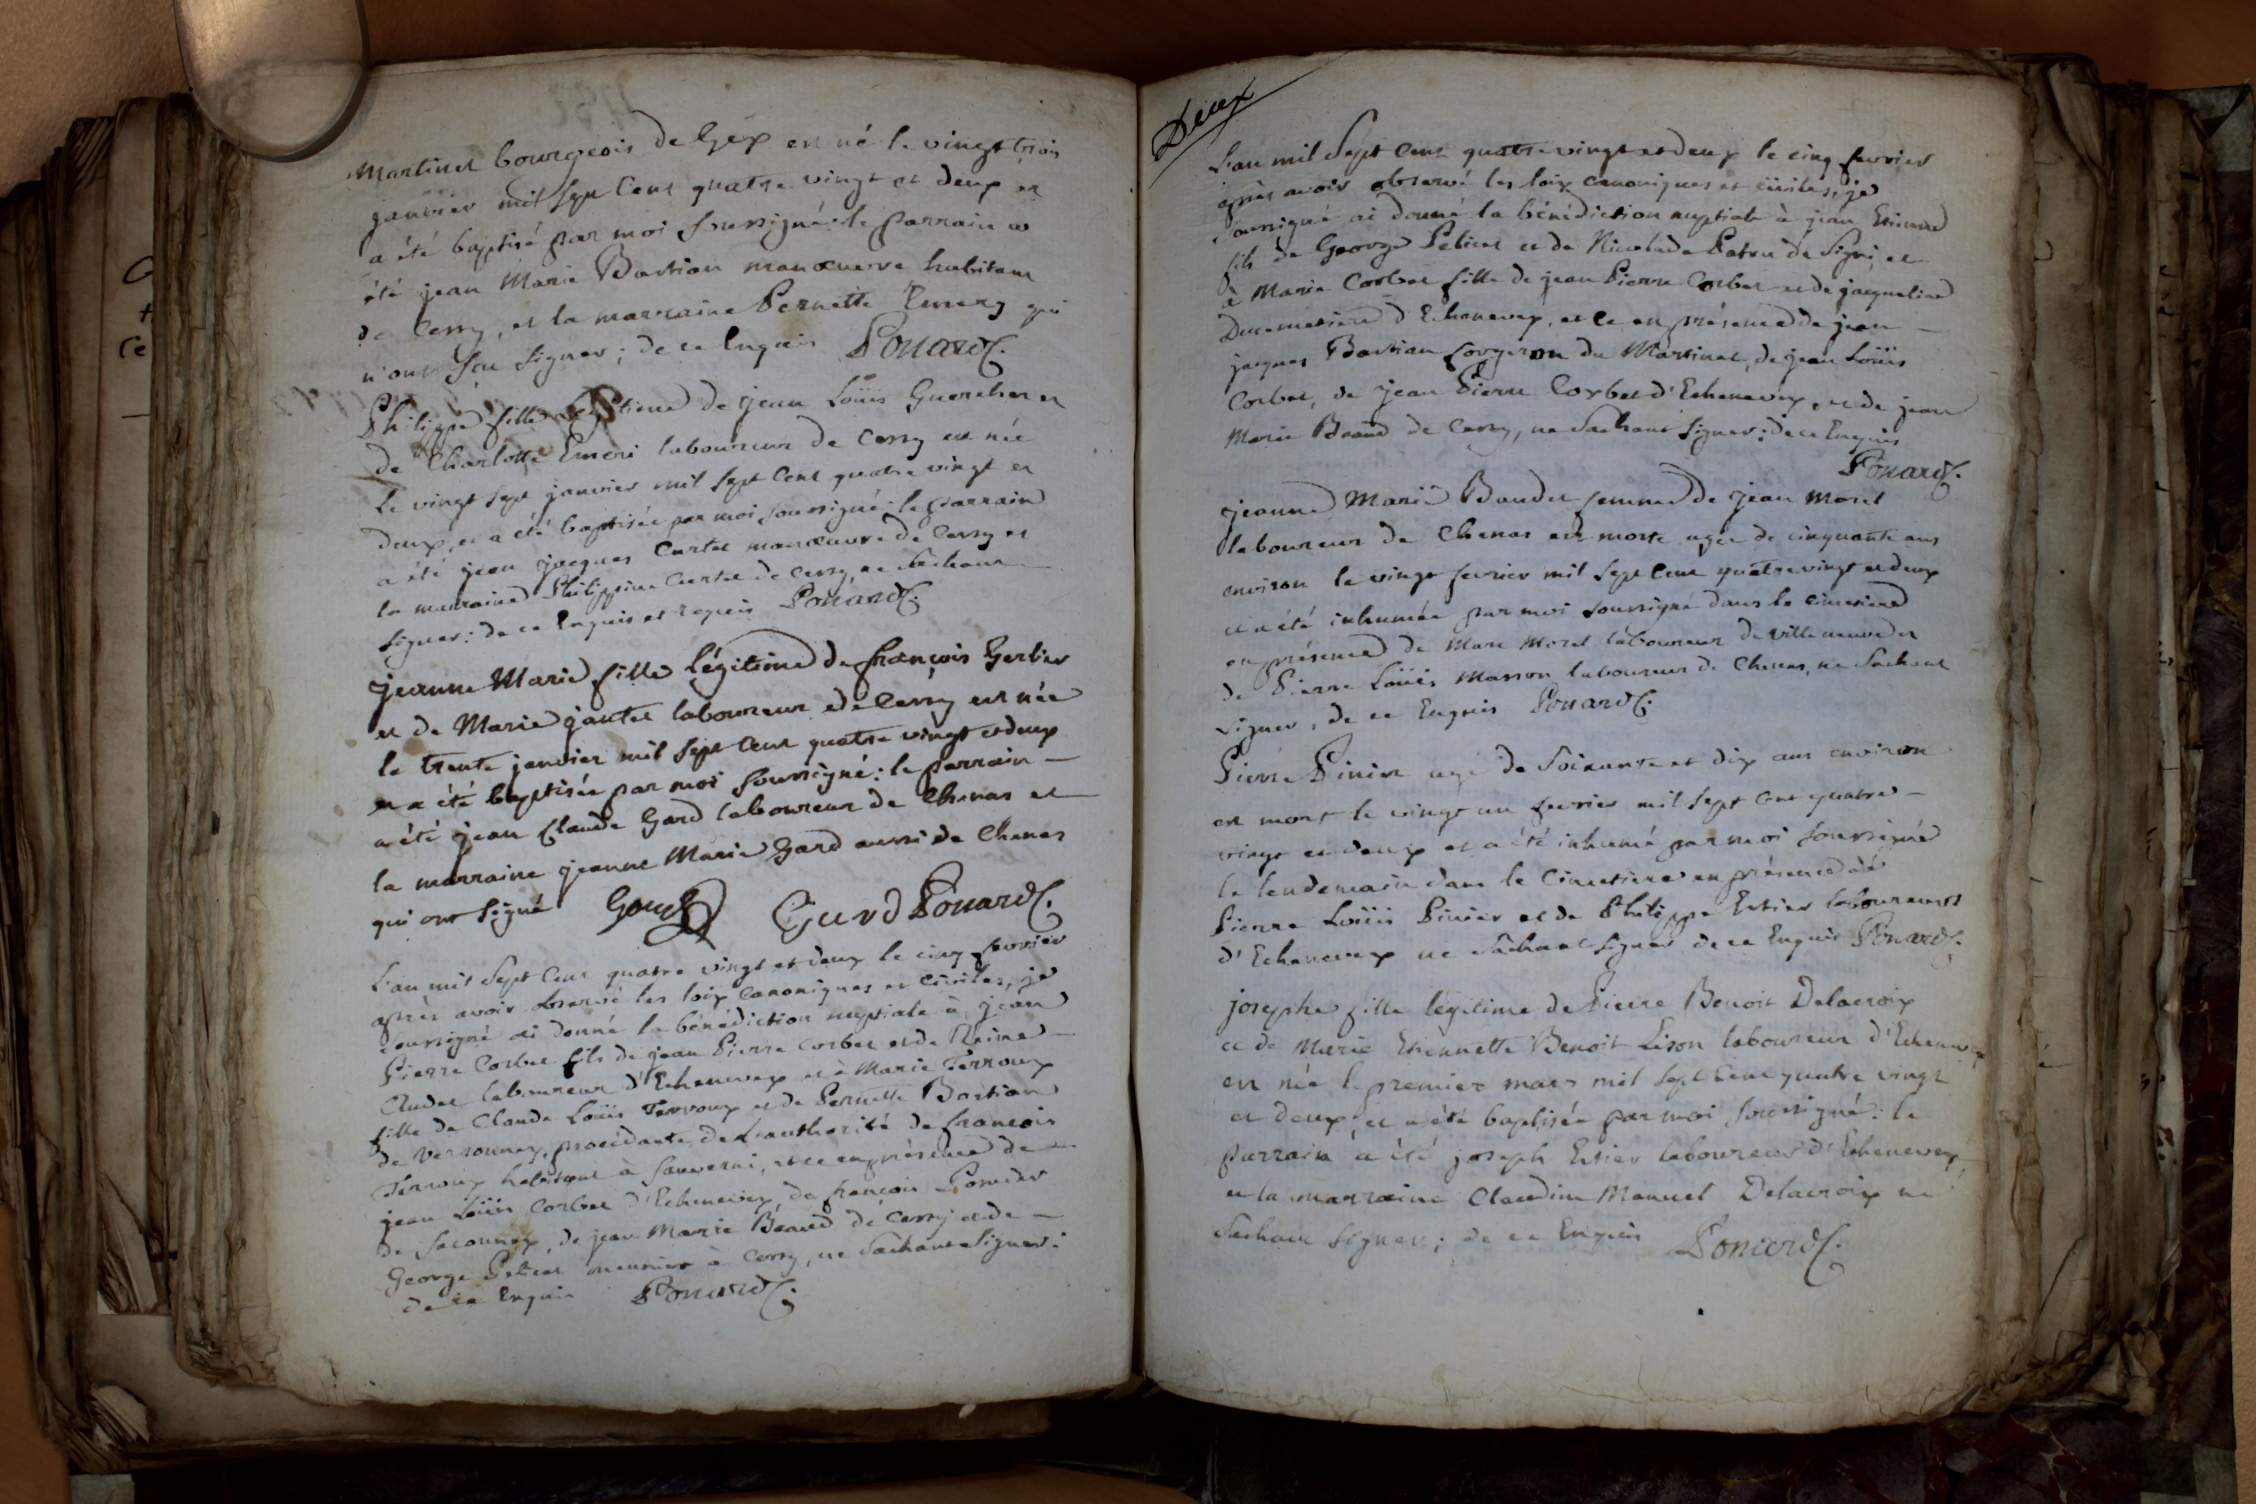 Martinet bourgeois de Gex est né le vingt trois
janvier mil sept cent quatre vingt et deux et
a été baptisé par moi soussigné: le parrain a
été jean Marie Bastian manœuvre habitant
de Cessy, et la marraine Pernette Emery qui
n'ont sçu signer; de ce Enquis Ponard C.
Philippe fille légitime de jean Loüis Guerchet et
de Charlotte Emeri laboureur de Cessy est née
le vingt sept janvier mil sept cent quatre vingt et
deux, et a été baptisée par moi soussigné: le parrain
a été jean jacques Curtet manœuvre de Cessy et
la marraine Philippine Curtet de Cessy, ne sachant
signer: de ce Enquis et requis Ponard C.
jeanne Marie fille légitime de françois Gerlier
et de Marie jantet laboureur de Cessy est née
le trente janvier mil sept cent quatre vingt et deux
et a été baptisée par moi soussigné: le parrain —
a été jean Claude Gard laboureur de Chenas et —
la marraine jeanne Marie Gard aussi de Chenas
qui ont signé Gard Gard Ponard C.
L'an mil sept cent quatre vingt et deux le cinq fevrier
après avoir observé les loix canoniques et civiles, je
soussigné ai donné la bénédiction nuptiale à jean
Pierre Corbet fils de jean Pierre Corbet et de Reine —
Audet laboureur d'Echenevex et à Marie Terroux
fille de Claude Loüis Terroux et de Pernette Bastian
de Versonnex, procédante de l'authorité de françois
Terroux habitant à Sauverni, et ce en présence de —
jean Loüis Corbet d'Echenevex de françois
de Saconnex, de jean Marie Béaud de Cessy et de —
George Pelicet meunier à Cessy, ne sachant signer:
de ce Enquis Ponard C.
Deux
L'an mil sept cent quatre vingt et deux le cinq fevrier
après avoir observé les loix canoniques et civiles, je
soussigné ai donné la bénédiction nuptiale à jean Etienne
fils de George Pelicet et de Nicolade Patru de Signi, et
à Marie Corbet fille de jean Pierre Corbet et de jacqueline
Ducimetiere d'Echenevex, et ce en présence de jean —
jacques Bastian forgeron du Martinet, de jean Loüis
Corbet, de jean Pierre Corbet d'Echenevex, et de jean
Marie Beaud de Cessy, ne sachant signer: de ce Enquis
Ponard C.
jeanne Marie Baudet femme de jean Morel
laboureur de Chenas est morte agée de cinquante ans
environ le vingt fevrier mil sept cent quatre vingt et deux
et a été inhumée par moi soussigné dans le cimetiere
en présence de Marc Morel laboureur de Villeneuve et
de Pierre Loüis Masson laboureur de Chenas, ne sachant
signer, de ce Enquis Ponard C.
Pierre Pinier agé de Soixante et dix ans environ
est mort le vingt un fevrier mil sept cent quatre —
vingt et deux et a été inhumé par moi soussigné
le lendemain dans le Cimetiere en présence de
Pierre Loüis Pinier et de Philippe Estier laboureurs
d'Echenevex ne sachant signer de ce Enquis Ponard C.
josephe fille légitime de Pierre Benoit Delacroix
et de Marie Etiennette Benoit Lison laboureur d'Echenevex
est née le premier mars mil sept cent quatre vingt
et deux, et a été baptisée par moi soussigné: le
parrain a été joseph Estier laboureur d'Echenevex,
et la marraine Claudine Manuel Delacroix ne
sachant signer; de ce Enquis Ponard C.